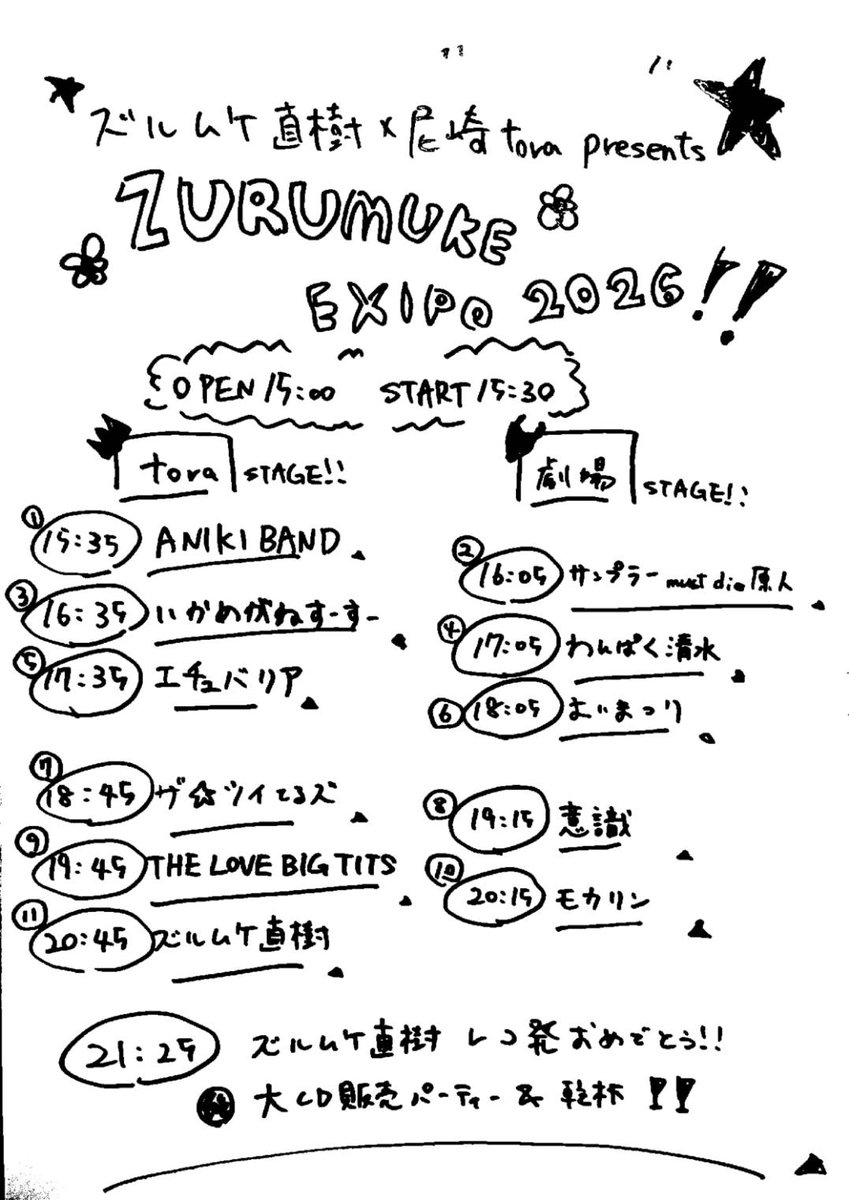 ズルムケ直樹×尼崎tora presents
ZURUMUKE
EXIPO 2026!!
OPEN 15:00 START 15:30
tora STAGE!!
① 15:35 ANIKI BAND
③ 16:35 いかめがねすーすー
⑤ 17:35 エチュバリア
⑦ 18:45 ザ☆ツイてるズ
⑨ 19:45 THE LOVE BIG TITS
⑪ 20:45 ズルムケ直樹
劇場 STAGE!!
② 16:05 サンプラー must die 原人
④ 17:05 わんぱく清水
⑥ 18:05 まいまつり
⑧ 19:15 意識
⑩ 20:15 モカリン
21:25 ズルムケ直樹 レコ発おめでとう!!
大CD販売パーティー & 乾杯!!